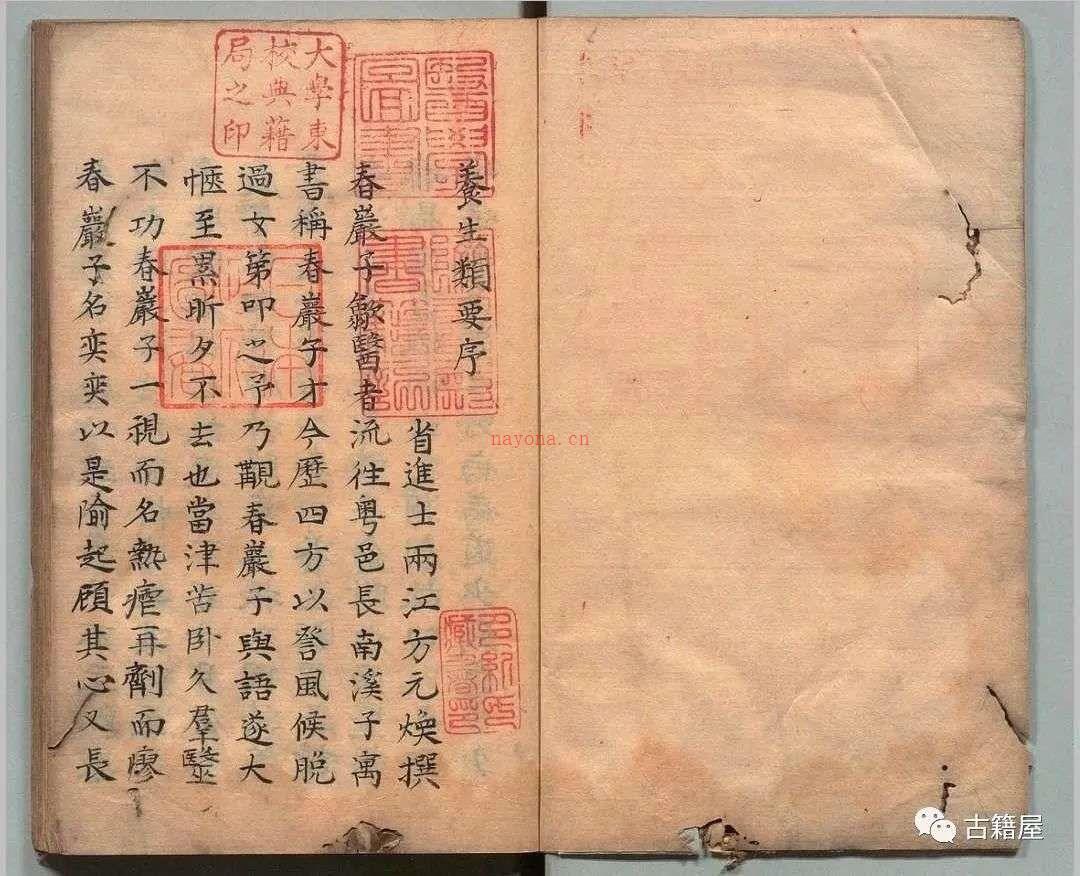 養生類要序
省進士兩江方元煥撰
春巖子歙醫者流往粤邑長南溪子寓
書稱春巖子才今歷四方以咨風候脫
過女第叩之予乃覯春巖子與語遂大
愜至累昕夕不去也當津苦卧久羣毉
不功春巖子一視而名熱瘧再劑而廖
春巖子名奕奕以是隃起顧其心又長
大學東
校典藉
局之印
nayona.cn
古籍屋